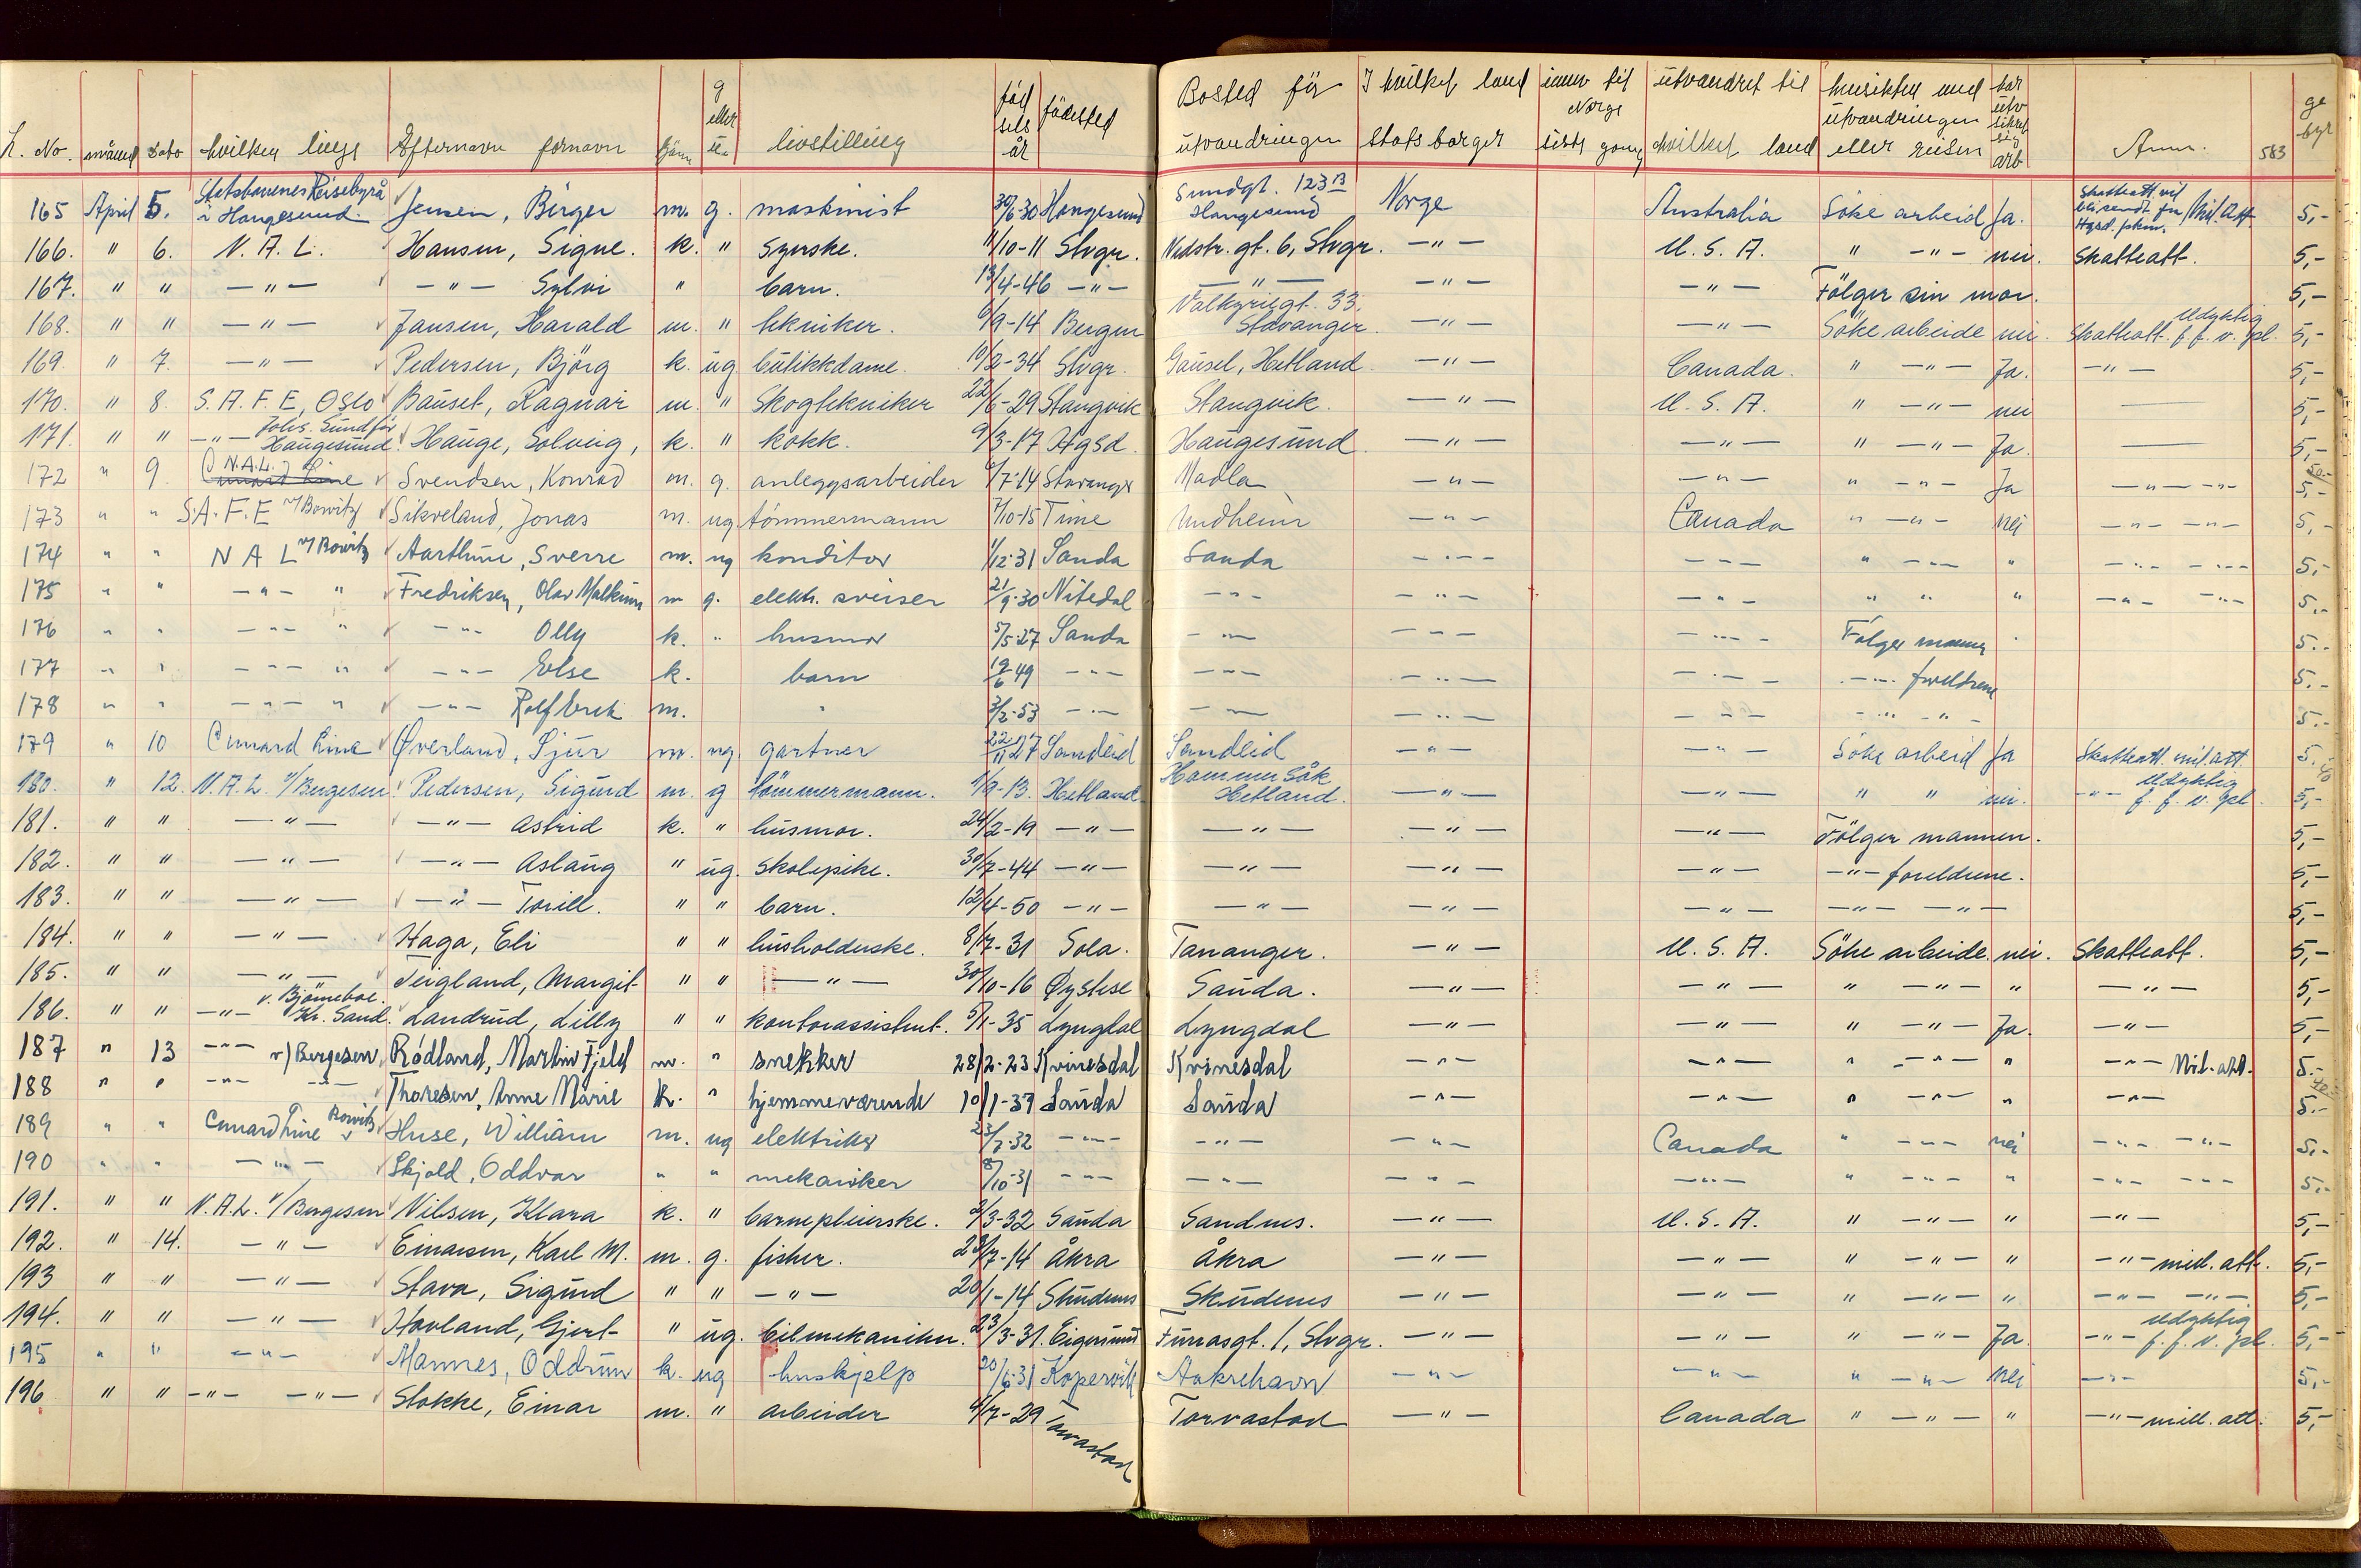 L. No. måned dato hvilken linje Efternavn fornavn kjønn g eller u. livstilling fødselsår fødested Bosted før utvandringen I hvilket land statsborger innv til Norge siste gang utvandret til hvilket land hensikten med utvandringen eller reisen har utv sikret sig arb Anm. 583 gebyr
165 April 5. Statsbanenes Reisebyrå i Haugesund. Jensen, Birger m. g. maskinist 30/6-30 Haugesund Sundgt. 123 B Haugesund Norge Australia Söke arbeid Ja. Skatteatt vil bli sendt fra Hgsd. / Mil. Att 5,-
166. " 6. N. A. L. Hansen, Signe. k. " syerske. 11/10-11 Stvgr. Nedstr. gt. 6, Stvgr. -"- U. S. A. " -"- nei. Skatteatt. 5,-
167. " " -"- -"- Sylvi " barn. 13/4-46 -"- -"- -"- -"- Fölger sin mor. 5,-
168. " " -"- Jansen, Harald m. " tekniker. 6/9-14 Bergen Valkyriegt. 33. Stavanger. -"- -"- Söke arbeide nei. Skatteatt. Udyktig f. f. v. pl. 5,-
169. " 7. -"- Pedersen, Björg k. ug bütikkdame. 10/2-34 Stvgr. Gausel, Hetland. -"- Canada. " -"- Ja. -"- 5,-
170. " 8. S. A. F. E, Oslo Bäuset, Ragnar m. " Skogtekniker 22/6-29 Stangvik Stangvik. -"- U. S. A. " -"- nei — 5,-
171. " " -"- Johs. Sundför Haugesund. Hauge, Solveig, k. " kokk. 9/3-17 Hgsd. Haugesund. -"- -"- " -"- Ja. — 5,-
172 " 9. N.A.L. Cunard Line Svendsen, Konrad m. g. anleggsarbeider /7-14 Stavanger Madla -"- -"- " -"- Ja -"- -"- 5,-
173 " " S.A.F.E v/Bowitz Sikveland, Jonas m. ug tömmermann 7/10-15 Time Undheim -"- Canada " -"- Nei -"- -"- 5,-
174 " " N A L v/Bowitz Aarthun, Sverre m. ug konditor 1/12-31 Sauda Sauda -"- -"- " -"- " -"- -"- 5,-
175 " " -"- " Fredriksen, Olav m g. elektr. sveiser 21/9-30 Nitedal -"- -"- -"- " " " -"- -"- 5,-
176 " " -"- " -"- Olly k. " husmor 5/5-27 Sauda -"- -"- -"- Følger mannen 5.-
177 " " -"- " -"- Else k. barn 19/6 49 -"- -"- -"- -"- -"- foreldrene 5.-
178 " " -"- " -"- Rolf Erik m. " 3/2-53 -"- -"- -"- -"- -"- -"- 5.-
179 " 10 Cunard Line Øverland, Sjur m. ug. gartner 22/11 27 Sandeid Sandeid -"- -"- Söke arbeid Ja Skatteatt. mil.att. 5.-
180. " 12. N. A. L. v/Bergesen Pedersen, Sigurd m. g tömmermann. 1/9-13. Hetland. Hammersåk Hetland. -"- -"- " " nei. -"- Udyktig f. f. v. gpl. 5,-
181. " " -"- -"- Astrid k. " husmor. 24/2-19 -"- -"- -"- -"- Fölger mannen. 5,-
182. " " -"- -"- Aslaug " ug. skolepike. 30/7-44 -"- -"- -"- -"- -"- foreldrene. 5,-
183. " " -"- -"- Torill. " " barn. 12/4-50 -"- -"- -"- -"- -"- -"- 5,-
184. " " -"- Haga, Eli " " husholderske. 8/7-31 Sola. Tananger. -"- U. S. A. Söke arbeide. nei. Skatteatt. 5,-
185. " " -"- Teigland, Margit " " -"- 30/10-16 Øystese Sauda. -"- -"- " -"- " -"- 5,-
186. " " -"- v. Björneboe. Kr. Sand. Landrud, Lilly " " kontorassistent. 5/1-35 Lyngdal Lyngdal -"- -"- " -"- Ja. -"- 5,-
187 " 13 -"- v/Bergesen, Rödland, Martin Fjeld m. " snekker 28/2-23 Kvinesdal Kvinesdal -"- -"- " -"- " -"- Mil. att. 5.-
188 " " -"- -"- Thoresen, Anne Marie k. " hjemmeværende 10/1-37 Sauda Sauda -"- -"- " -"- " -"- 5.-
189 " " Cunard Line v Bowitz Huse, William m. ug elektriker 23/7-32 -"- -"- -"- Canada " -"- nei -"- -"- 5.-
190 " " -"- Skjold, Oddvar " " mekaniker 8/10-31 -"- -"- -"- -"- " -"- " -"- -"- 5.-
191. " " N. A. L. v/Bergesen Nilsen, Klara k. " barnepleierske. 2/3-32 Sauda Sandnes. -"- U. S. A. " -"- " -"- 5,-
192. " 14. -"- Einarsen, Karl M. m. g. fisker. 28/7-14 Åkra Åkra -"- -"- " -"- " -"- mil. att. 5,-
193 " " -"- Stava, Sigurd " " -"- 20/1-14 Skudenes Skudenes -"- -"- " -"- " -"- -"- 5,-
194. " " -"- Hovland, Gjert " ug. bilmekaniker. 23/3-31. Eigersund Furrasgt. 1, Stvgr. -"- -"- " -"- Ja. -"- Udyktig f. f. v. pl. 5,-
195 " " -"- Mannes, Oddrun k. ug huskjelp 20/6-31 Kopervik Aakrehavn -"- -"- " -"- Nei -"- 5,-
196 " " -"- -"- Stokke, Einar m. " arbeider 4/7-29 Torvastad Torvastad -"- Canada " -"- " -"- mill. att. 5,-